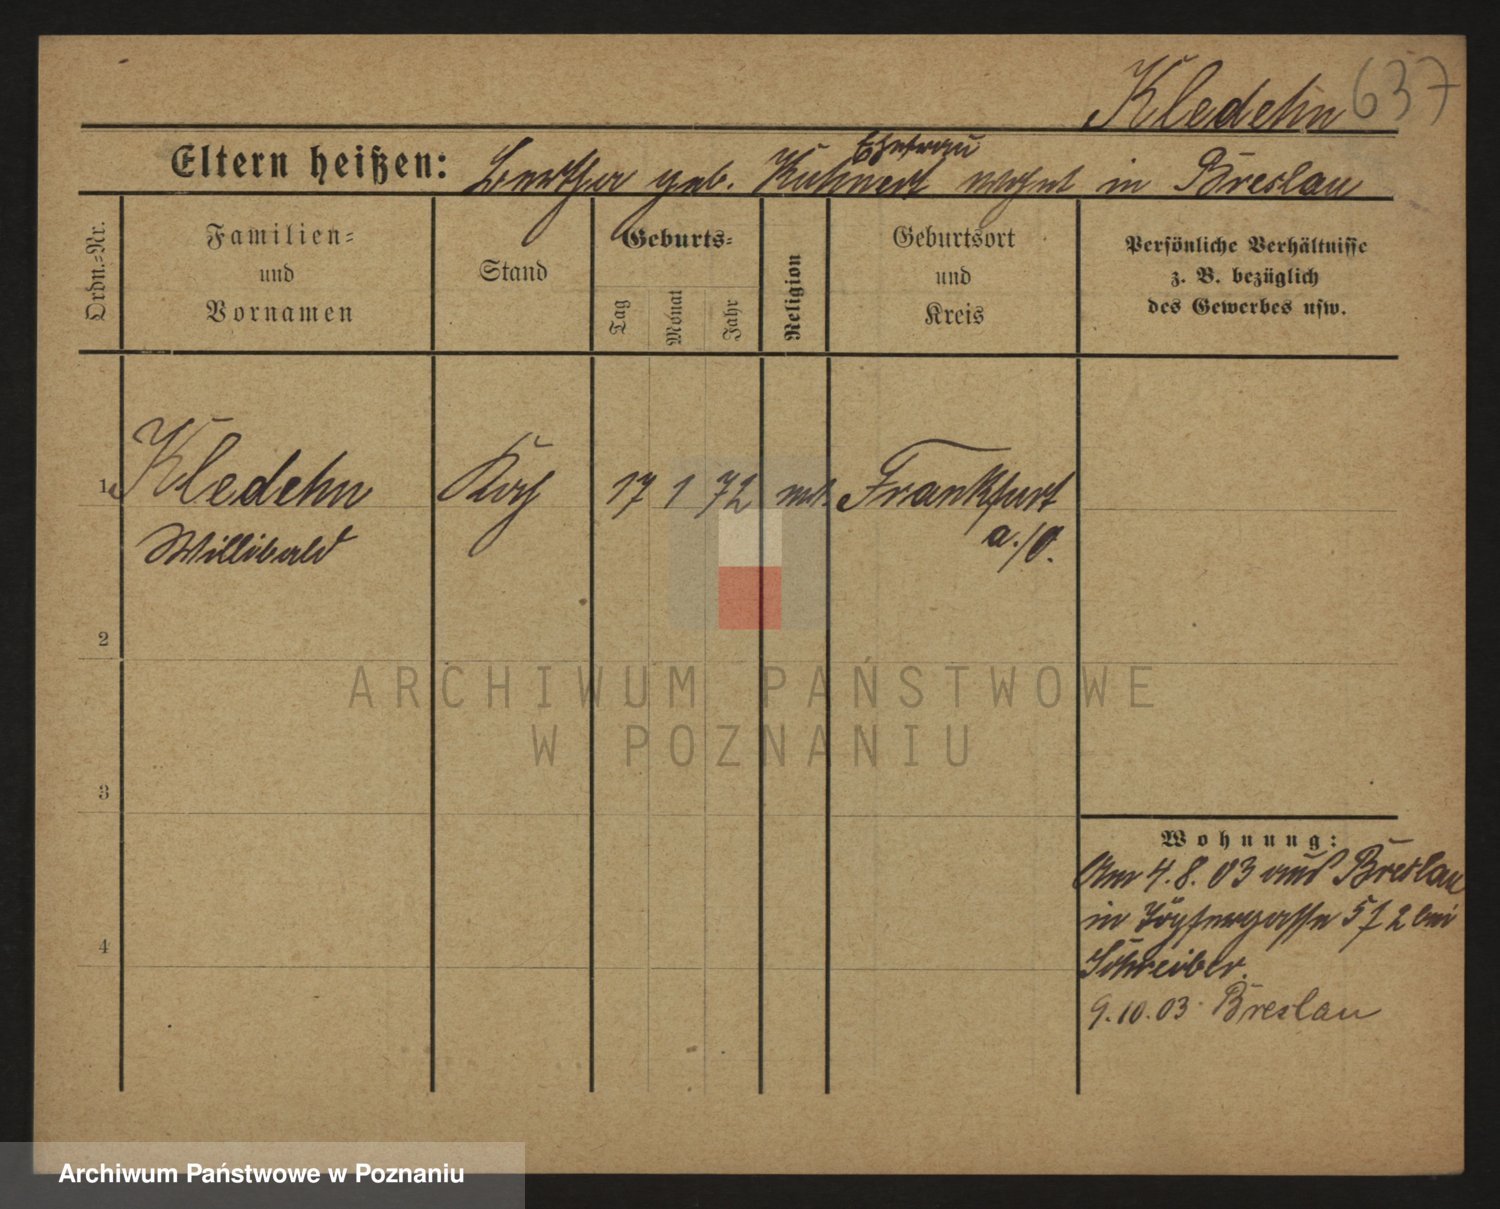 Kledehn 637
Eltern heißen:
Ehefrau
Bertha geb. Kuhnert wohnt in Breslau
Ordn.=Nr.
Familien=
und
Vornamen
Stand
Geburts=
Tag
Monat
Jahr
Religion
Geburtsort
und
Kreis
Persönliche Verhältnisse
z. B. bezüglich
des Gewerbes usw.
1 Kledehn Koch 17 1 72 Frankfurt
Willibald a./O.
2
3
4
Wohnung:
Am 4.8.03 aus Breslau
in Töpfergasse 5 f 2 bei
Schreiber.
9.10.03 Breslau
ARCHIWUM PAŃSTWOWE
W POZNANIU
Archiwum Państwowe w Poznaniu